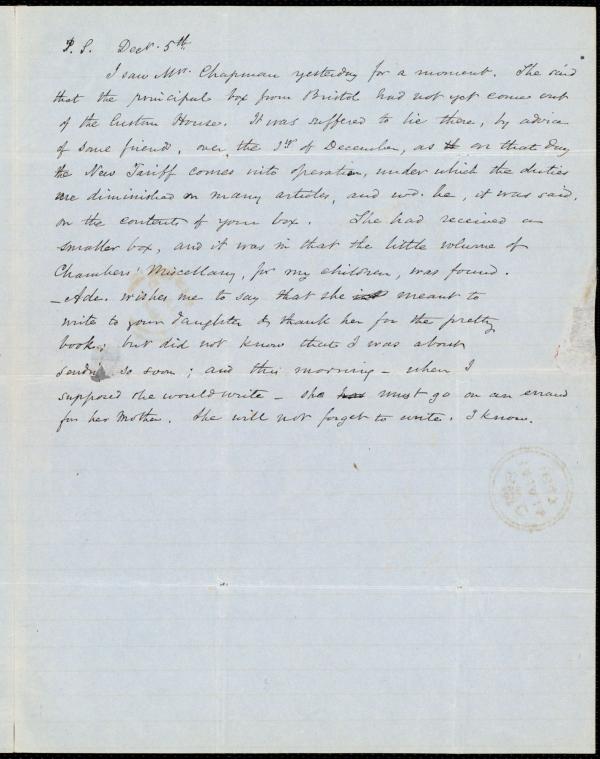 P.S. Decr. 5th.
I saw Mrs. Chapman yesterday for a moment. She said
that the principal box from Bristol had not yet come out
of the Custom House. It was suffered to lie there, by advice
of some friend, over the 1st of December, as on that day
the New Tariff comes into operation, under which the duties
are diminished on many articles, and wd. be, it was said,
on the contents of your box. She had received a
smaller box, and it was in that the little volume of
Chambers' Miscellany, for my children, was found.
— Ade. wishes me to say that she meant to
write to your daughter & thank her for the pretty
book; but did not know that I was about
sending so soon; and this morning — when I
supposed she would write — she must go on an errand
for her Mother. She will not forget to write. I know.